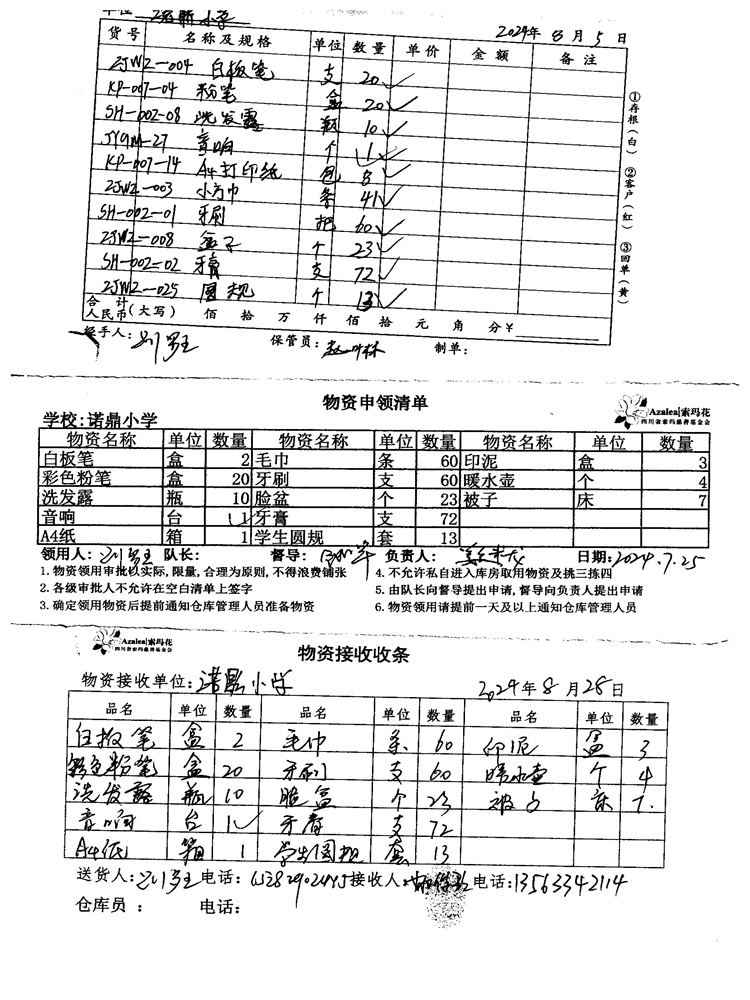 单位 诺鼎小学 2024年8月5日
货号 名称及规格 单位 数量 单价 金额 备注
ZJWZ-004 白板笔 支 20 ✓
KP-007-04 粉笔 盒 20 ✓
SH-002-08 洗发露 瓶 10 ✓
JYQM-27 音响 个 1 ✓
KP-007-14 A4打印纸 包 8 ✓
ZJWZ-003 小方巾 条 41 ✓
SH-002-01 牙刷 把 60 ✓
ZJWZ-008 盆子 个 23 ✓
SH-002-02 牙膏 支 72 ✓
ZJWZ-025 圆规 个 13 ✓
合计人民币(大写) 佰 拾 万 仟 佰 拾 元 角 分¥
经手人: 保管员: 制单:
①存根(白) ②客户(红) ③回单(黄)
物资申领清单
Azalea|索玛花
四川省索玛慈善基金会
学校:诺鼎小学
物资名称 单位 数量 物资名称 单位 数量 物资名称 单位 数量
白板笔 盒 2 毛巾 条 60 印泥 盒 3
彩色粉笔 盒 20 牙刷 支 60 暖水壶 个 4
洗发露 瓶 10 脸盆 个 23 被子 床 7
音响 台 1 牙膏 支 72
A4纸 箱 1 学生圆规 套 13
领用人: 队长: 督导: 负责人: 日期:2024.7.25
1.物资领用审批以实际,限量,合理为原则,不得浪费铺张 4.不允许私自进入库房取用物资及挑三拣四
2.各级审批人不允许在空白清单上签字 5.由队长向督导提出申请,督导向负责人提出申请
3.确定领用物资后提前通知仓库管理人员准备物资 6.物资领用请提前一天及以上通知仓库管理人员
Azalea|索玛花
四川省索玛慈善基金会
物资接收收条
物资接收单位:诺鼎小学 2024年8月28日
品名 单位 数量 品名 单位 数量 品名 单位 数量
白板笔 盒 2 毛巾 条 60 印泥 盒 3
彩色粉笔 盒 20 牙刷 支 60 暖水壶 个 4
洗发露 瓶 10 脸盆 个 23 被子 床 7.
音响 台 1 ✓ 牙膏 支 72
A4纸 箱 1 学生圆规 套 13
送货人: 电话: 接收人: 电话:13563342114
仓库员: 电话: